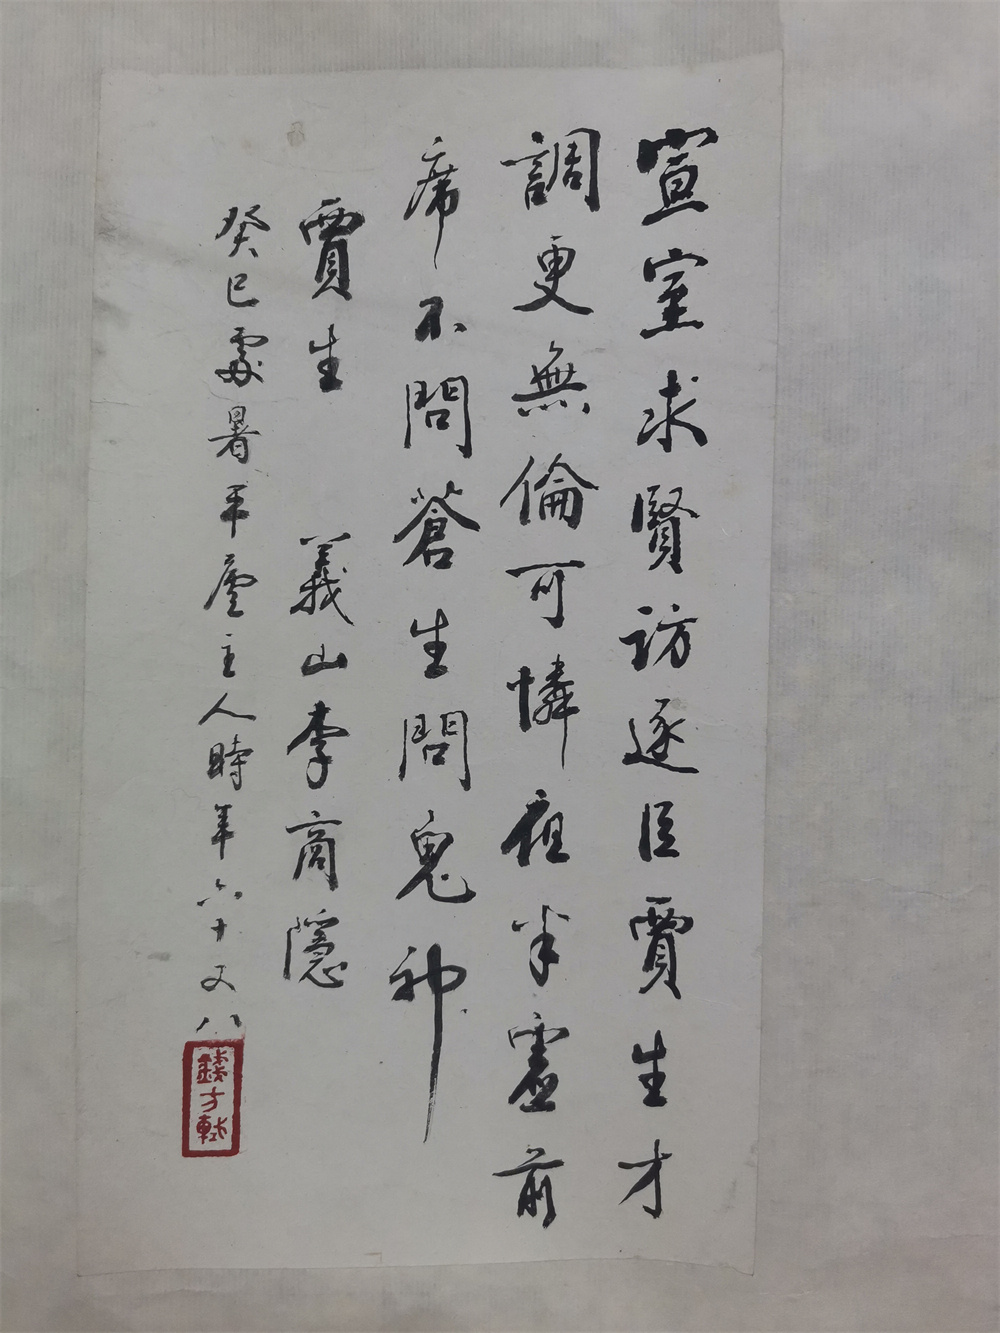 宣室求賢訪逐臣賈生才
調更無倫可憐夜半虛前
席不問蒼生問鬼神
賈生 義山李商隱
癸巳處暑平廬主人時年六十又八
錢方軾